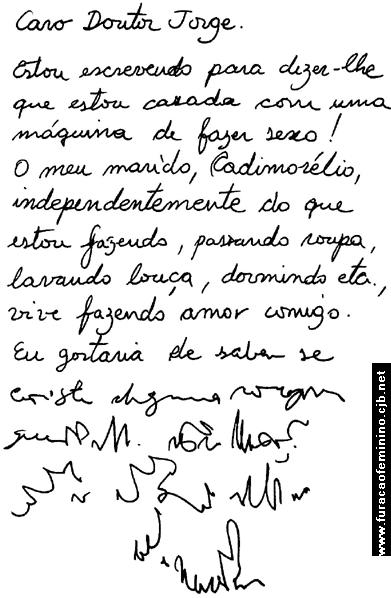 Caro Doutor Jorge.
Estou escrevendo para dizer-lhe
que estou casada com uma
máquina de fazer sexo!
O meu marido, Cadimorélio,
independentemente do que
estou fazendo, passando roupa,
lavando louça, dormindo etc.,
vive fazendo amor comigo.
Eu gostaria de saber se
existe alguma
www.furacaofeminino.cjb.net